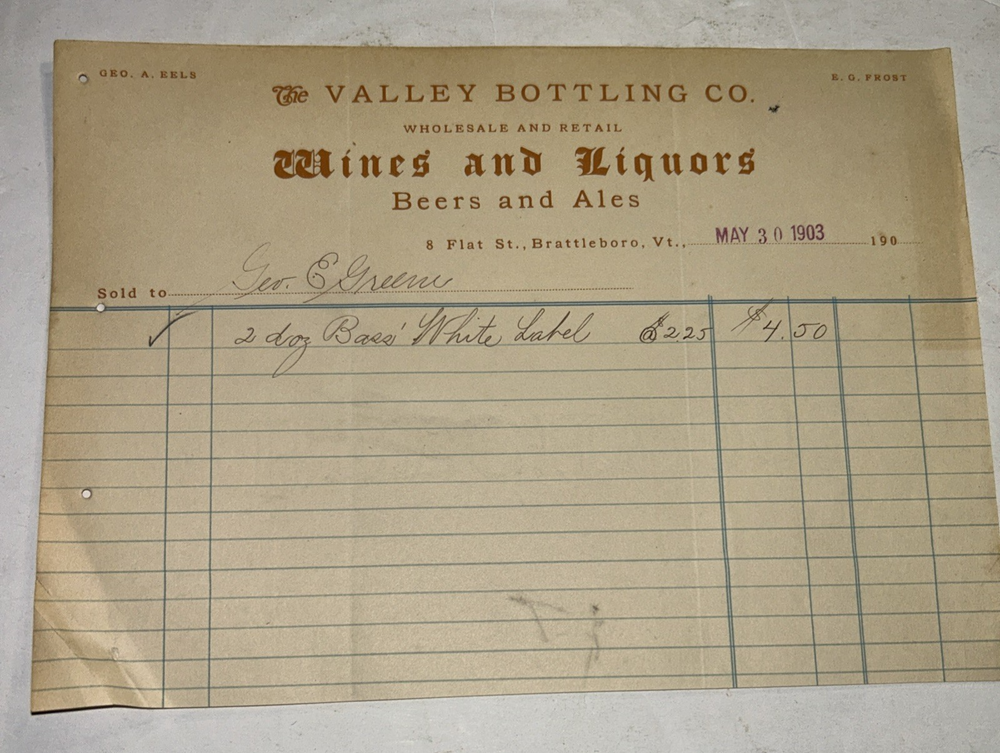 GEO. A. EELS
E. G. FROST
The VALLEY BOTTLING CO.
WHOLESALE AND RETAIL
Wines and Liquors
Beers and Ales
8 Flat St., Brattleboro, Vt., MAY 30 1903 190
Sold to Geo. E Greene
✓ 2 doz Bass' White Label @ 225 $4.50